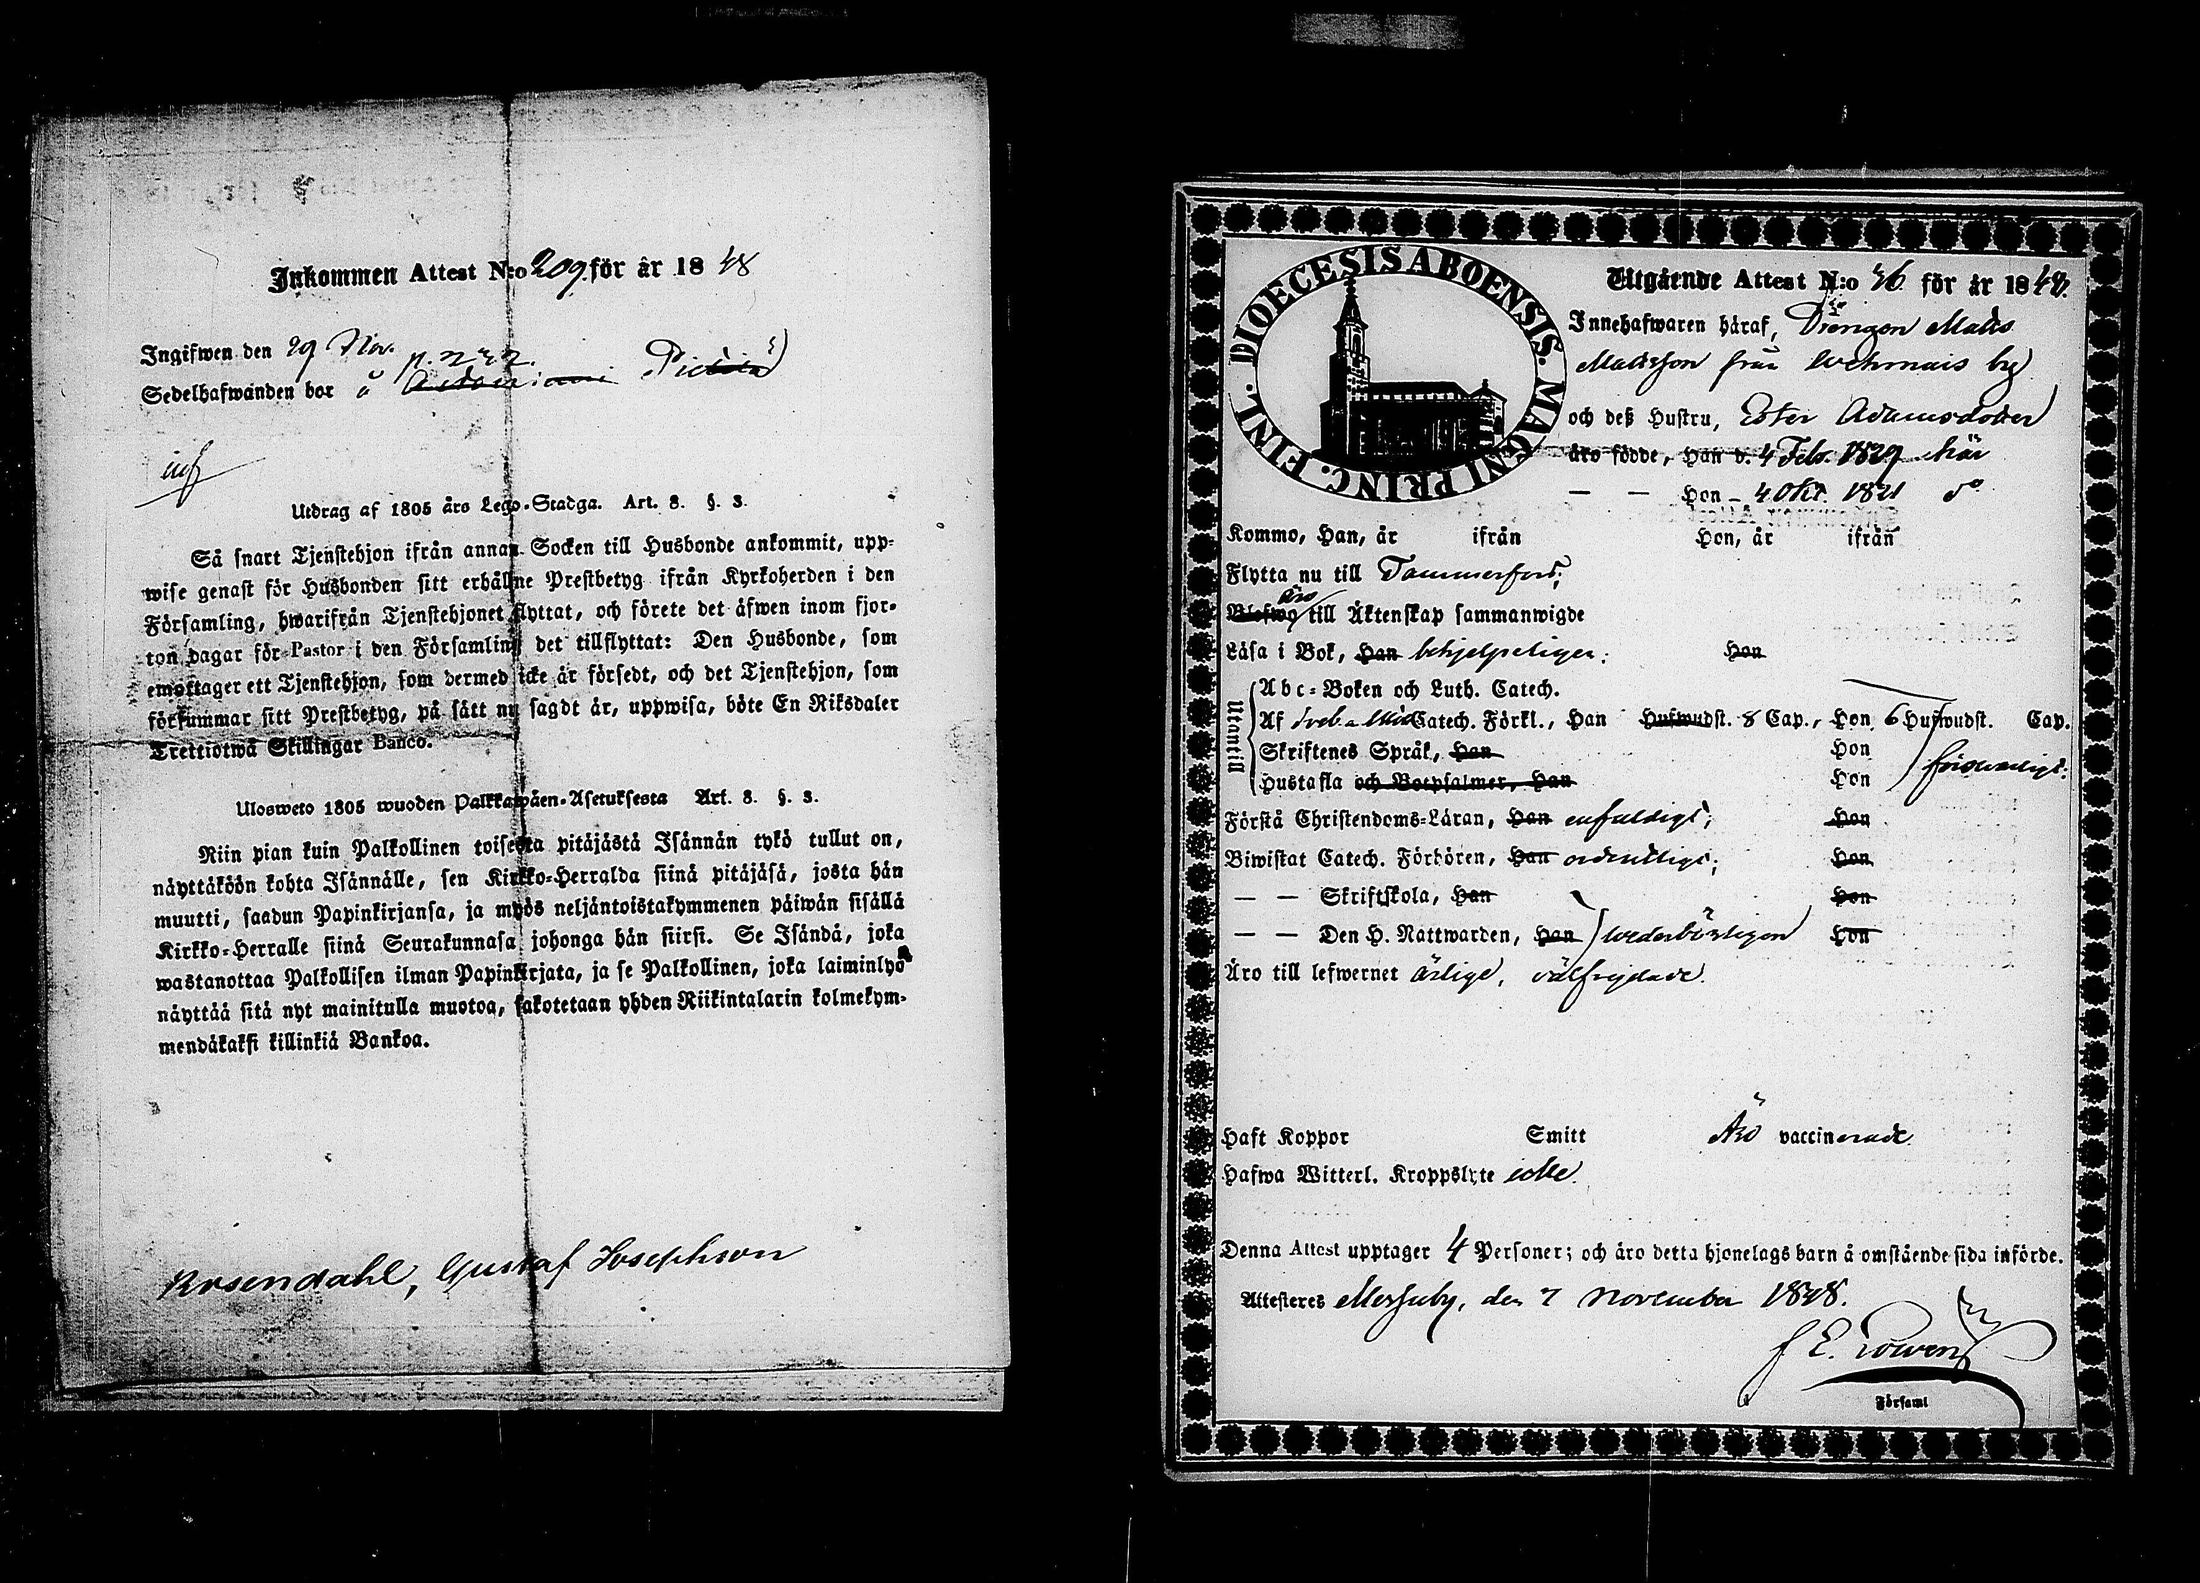 Inkommen Attest N:o 209. för år 1848
Ingifwen den 29 Nov.
Sedelhafwanden bor å
Utdrag af 1805 års Lego-Stadga. Art. 8. §. 3.
Så snart Tjenstehjon ifrån annan Socken till Husbonde ankommit, upp-
wise genast för Husbonden sitt erhållne Prestbetyg ifrån Kyrkoherden i den
Församling, hwarifrån Tjenstehjonet flyttat, och förete det äfwen inom fjor-
ton dagar för Pastor i den Församling det tillflyttat: Den Husbonde, som
emottager ett Tjenstehjon, som dermed icke är försedt, och det Tjenstehjon, som
försummar sitt Prestbetyg, på sätt nu sagdt är, uppwisa, böte En Riksdaler
Trettiotwå Skillingar Banco.
Ulosweto 1805 wuoden Palkkawäen-Asetuksesta Art. 8. §. 3.
Niin pian kuin Palkollinen toisesta pitäjästä Isännän tykö tullut on,
näyttäköön kohta Isännälle, sen Kirkko-Herralda siinä pitäjäsä, josta hän
muutti, saadun Papinkirjansa, ja myös neljäntoistakymmenen päiwän sisällä
Kirkko-Herralle siinä Seurakunnasa johonga hän siirsi. Se Isändä, joka
wastanottaa Palkollisen ilman Papinkirjata, ja se Palkollinen, joka laiminlyö
näyttää sitä nyt mainitulla muotoa, sakotetaan yhden Riikintalarin kolmekym-
mendäkaksi killinkiä Bankoa.
Rosendahl, Gustaf Josephson
DIOECESIS ABOENSIS. MAGNI PRINC. FINL.
Utgående Attest N:o 46 för år 1848.
Innehafwaren häraf, Drängen Matts
Mattsson från Wehmais by
och deß Hustru, Ester Adamsdotter
äro födde, Han d. 4 Febr. 1829 här
— — Hon – 4 Okt. 1821 do
Kommo, Han, år ifrån Hon, år ifrån
Flytta nu till Tammerfors;
Blefwo äro till Äktenskap sammanwigde
Läsa i Bok, Han behjelpeligen; Hon
Utantill
Abc-Boken och Luth. Catech.
Af Sveb. Catech. Förkl., Han Hufwudst. 8 Cap., Hon 6 Hufwudst. Cap.
Skriftenes Språk, Han Hon
Hustafla och Botpsalmer, Han Hon försvarligt;
Förstå Christendoms-Läran, Han enfaldigt; Hon
Biwistat Catech. Förhören, Han ordentligt; Hon
— — Skriftskola, Han Hon
— — Den H. Nattwarden, Han wederbörligen Hon
Äro till lefwernet ärlige, välfrejdade.
Haft Koppor Smitt Äro vaccinerade
Hafwa Witterl. Kroppslyte icke.
Denna Attest upptager 4 Personer; och äro detta hjonelags barn å omstående sida införde.
Attesteres Messuby, den 7 November 1848.
Församl